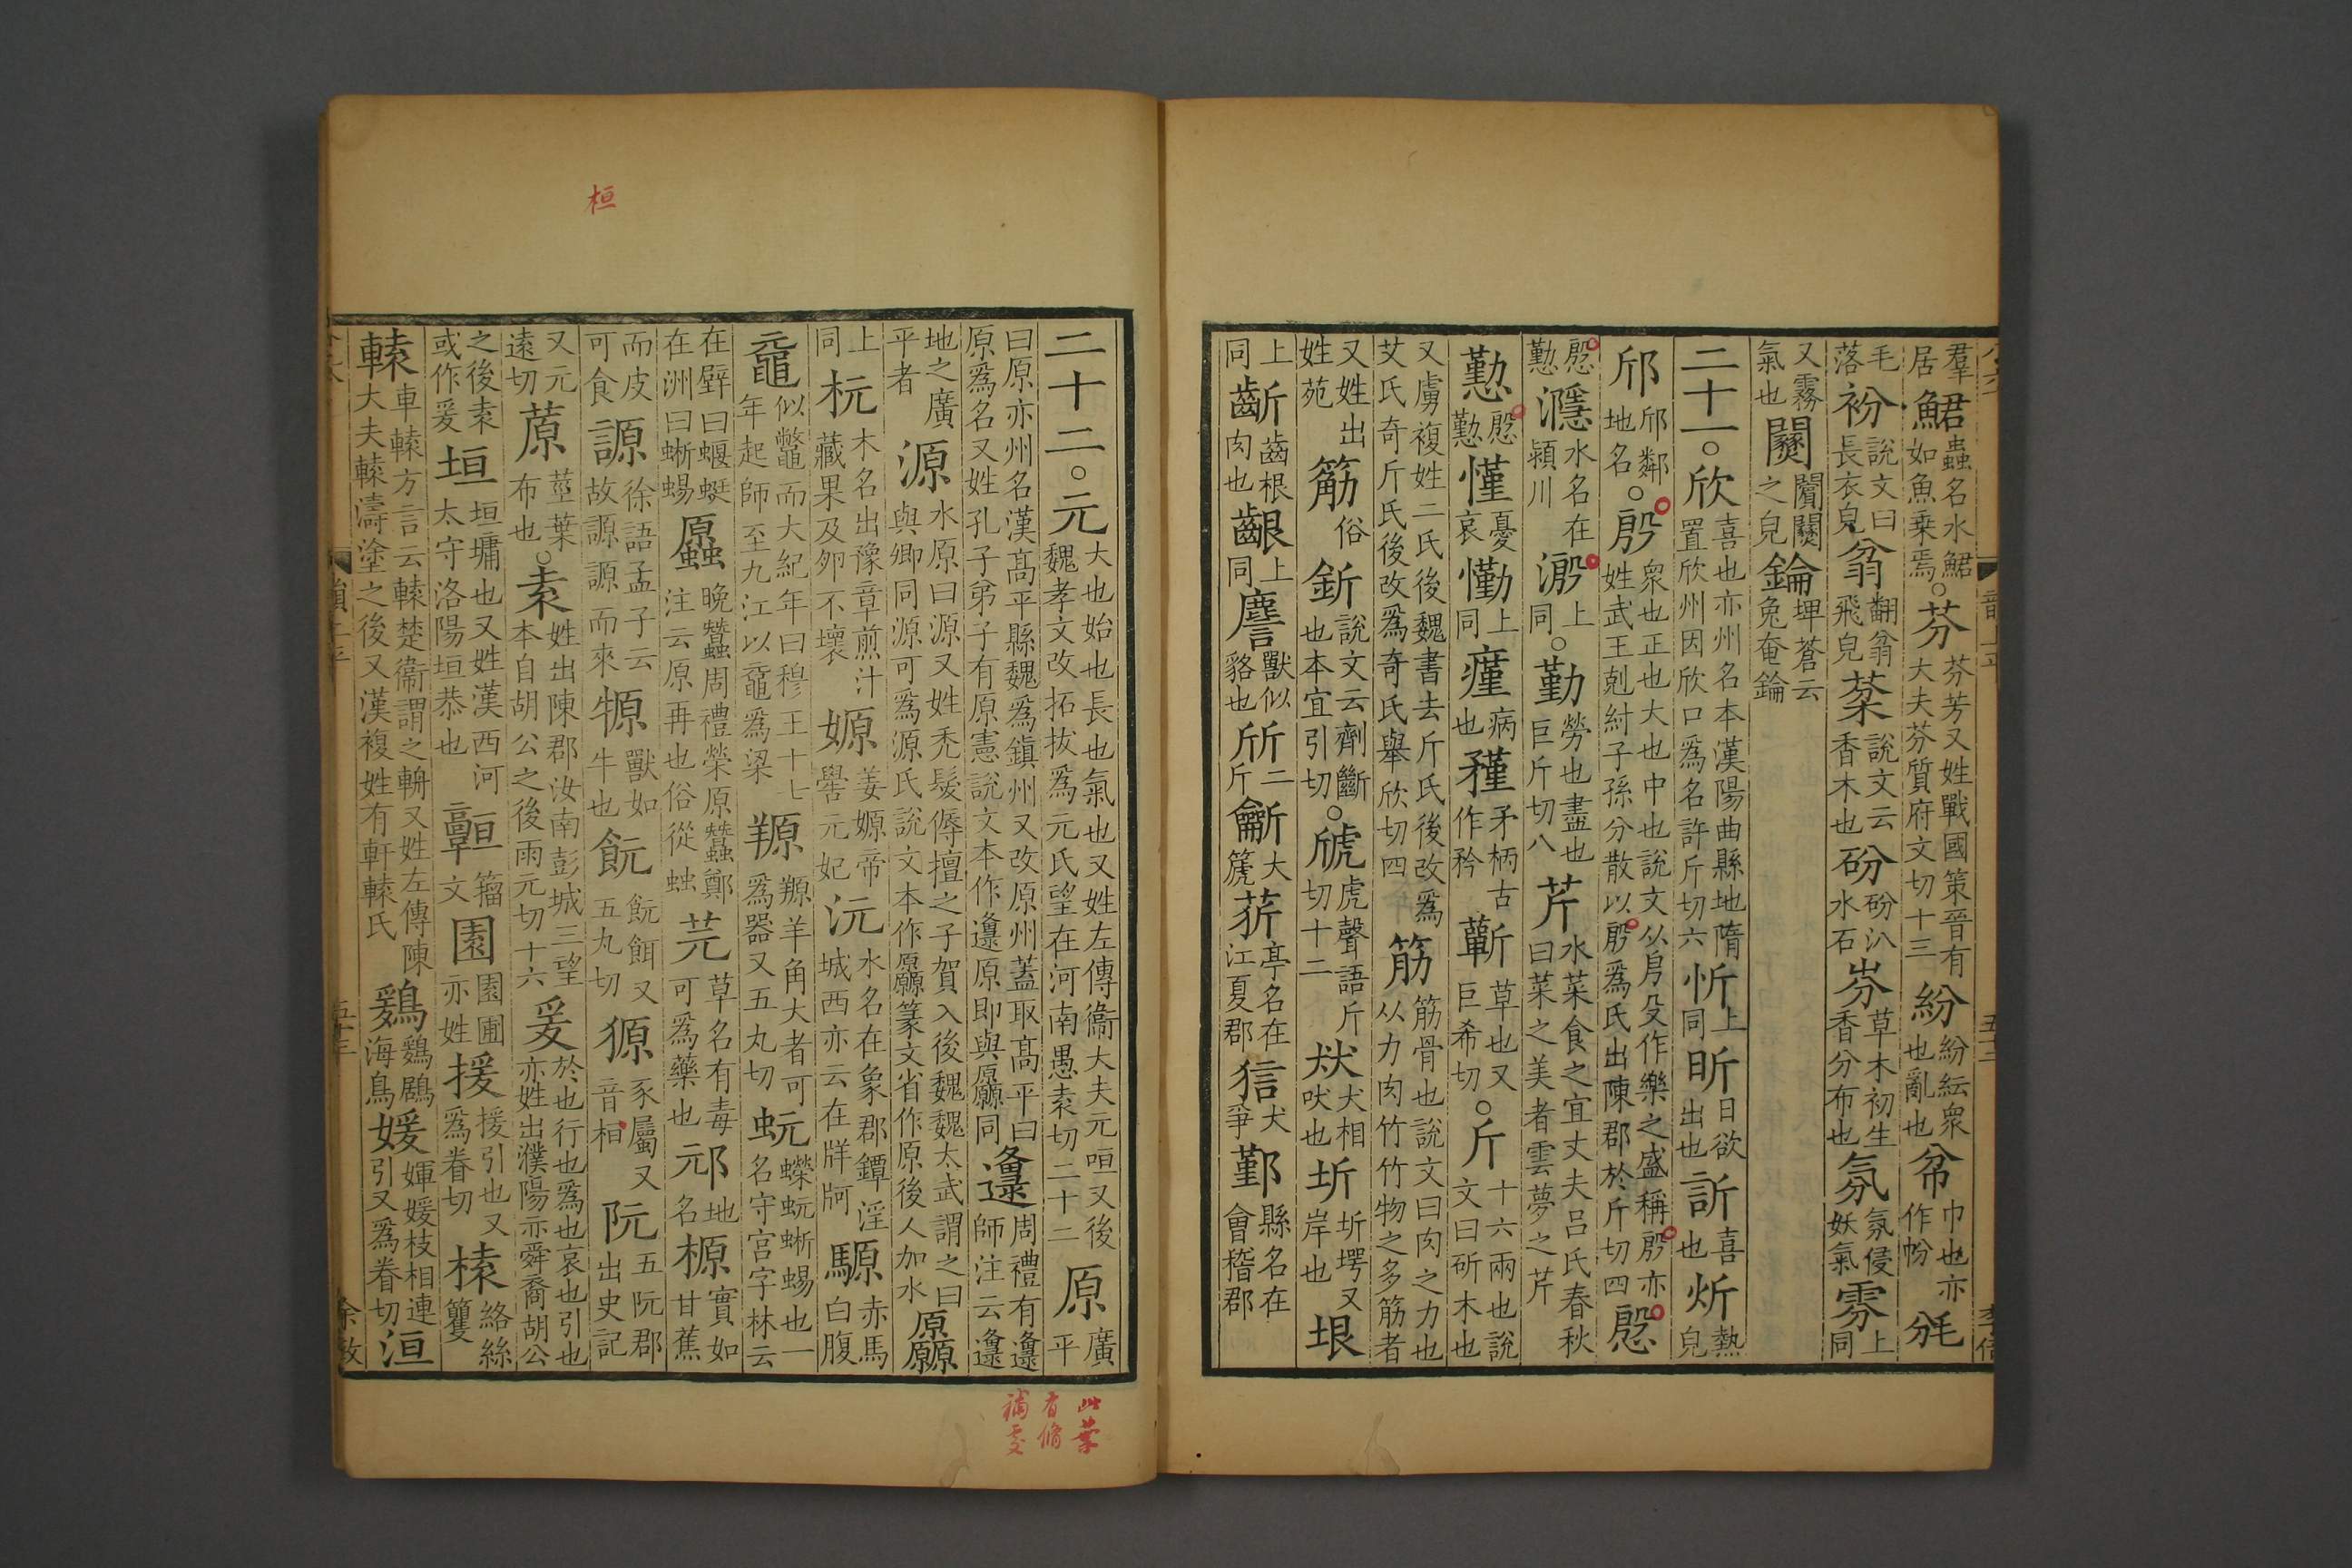 羣居鮶蟲名水鮶如魚乗焉○芬芬芳又姓戰國策晉有大夫芬質府文切十三紛紛紜衆也亂也巾也亦作帉
毛落衯說文曰長衣皃飛皃棻說文云香木也砏砏汃水石草木初生香分布也氛氛侵妖氣雰上同
又霧氣也之皃錀埤蒼云兔奄錀
二十一○欣喜也亦州名本漢陽曲縣地隋置欣州因欣口爲名許斤切六忻上同昕日欲出也訢喜也炘熱皃
邤邤鄰地名○殷衆也正也大也中也說文从㐆殳作樂之盛稱殷亦姓武王剋紂子孫分散以殷爲氏出陳郡於斤切四慇
慇懃濦水名在潁川溵上同○勤勞也盡也巨斤切八芹水菜食之宜丈夫吕氏春秋曰菜之美者雲夢之芹
懃慇懃慬憂哀懄上同瘽病也矜矛柄古作矜蘄草也又巨希切○斤十六兩也說文曰斫木也
又虜複姓二氏後魏書去斤氏後改爲艾氏奇斤氏後改爲奇氏舉欣切四筋筋骨也說文曰肉之力也从力肉竹竹物之多筋者
又姓出姓苑筋俗釿說文云劑斷也本宜引切○虓虎聲語斤切十二㹞犬相吠也圻圻堮又岸也垠
上同齗齒根肉也齦上同獸似貉也斦二斤大箎菥亭名在江夏郡㹜犬爭鄞縣名在會稽郡
二十二○元大也始也長也氣也又姓左傳衞大夫元咺又後魏孝文改拓拔爲元氏望在河南愚袁切二十二原廣平
曰原亦州名漢髙平縣魏爲鎮州又改原州蓋取髙平曰原爲名又姓孔子弟子有原憲說文本作邍原即與厵同邍周禮有邍師注云邍
地之廣平者源水原曰源又姓禿髮傉檀之子賀入後魏魏太武謂之曰與卿同源可爲源氏說文本作厵篆文省作原後人加水厵
上同杬木名出豫章煎汁藏果及夘不壞嫄姜嫄帝嚳元妃沅水名在象郡鐔城西亦云在牂牁淫騵赤馬白腹
黿似鼈而大紀年曰穆王十七年起師至九江以黿爲梁羱羱羊角大者可爲器又五丸切蚖蠑蚖蜥蜴也一名守宫字林云
在壁曰蝘蜓在洲曰蜥蜴䖠晚蠶周禮禜原蠶鄭注云原再也俗從虫芫草名有毒可爲藥也邧地名榞實如甘蕉
而皮可食謜徐語孟子云故謜謜而來䭴獸如牛也飩飩餌又五丸切豲豕屬又音桓阮五阮郡出史記
又元遠切䕍莖葉布也○袁姓出陳郡汝南彭城三望本自胡公之後雨元切十六爰於也行也爲也哀也引也亦姓出濮陽亦舜裔胡公
之後袁或作爰垣垣墉也又姓漢西河太守洛陽垣恭也園園圃亦姓援援引也又爲眷切榬絡絲籰
轅車轅方言云轅楚衞謂之輈又姓左傳陳大夫轅濤塗之後又漢複姓有軒轅氏鶢鶢鶋海鳥媛嬋媛枝相連引又爲眷切洹
桓
此葉
有脩
補處